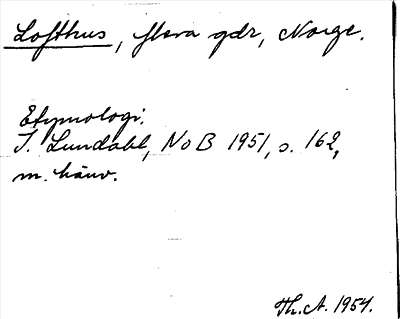 Lofthus, flera gdr, Norge.
Etymologi.
I. Lundahl, NoB 1951, s. 162,
m. hänv.
Th. A. 1954.